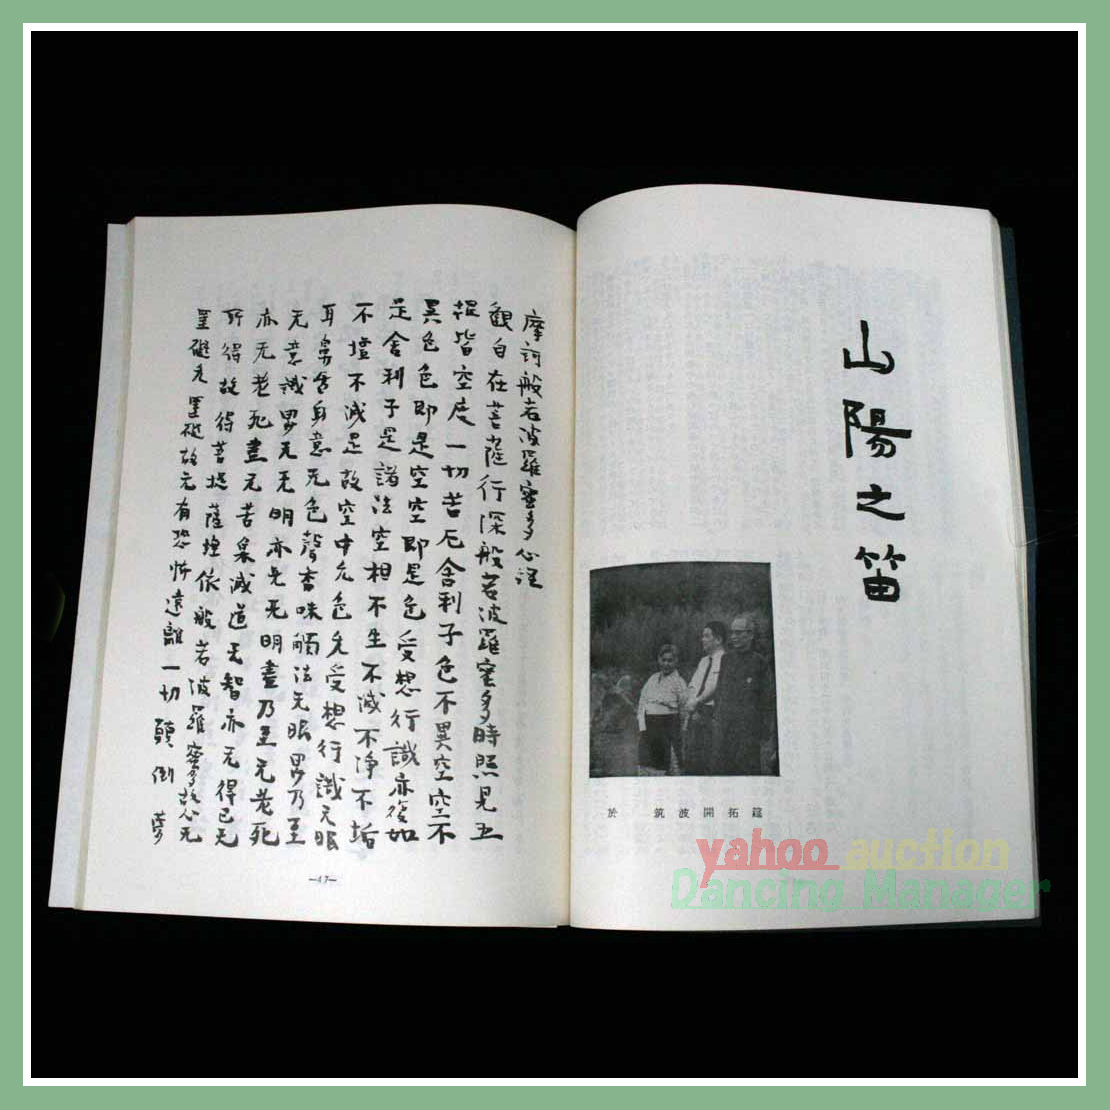 山陽之笛
於 筑波開拓筵
摩訶般若波羅蜜多心経
観自在菩薩行深般若波羅蜜多時照見五
蕴皆空度一切苦厄舍利子色不異空空不
異色色即是空空即是色受想行識亦復如
是舍利子是諸法空相不生不滅不浄不垢
不增不減是故空中无色无受想行識无眼
耳鼻舌身意无色聲香味觸法无眼界乃至
无意識界无无明亦无无明盡乃至无老死
亦无老死盡无苦集滅道无智亦无得已无
所得故得菩提薩埵依般若波羅蜜多故心无
罣礙无罣礙故无有恐怖遠離一切顛倒夢
—47—
yahoo auction
Dancing Manager